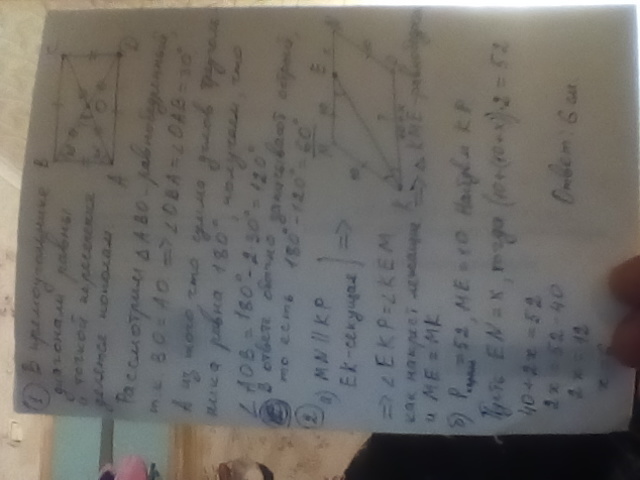 ① В прямоугольнике
диагонали равны
и точкой пересечения
делятся пополам.
B C
A D
O
Рассмотрим △ABO - равнобедренный,
т.к. BO = AO => ∠OBA = ∠OAB = 30°
А из того что сумма углов треуголь
ника равна 180° получаем, что
∠AOB = 180° - 2·30° = 120°
В ответе обычно записывают острый,
то есть 180° - 120° = 60°
② а) MN || KP
EK - секущая } =>
=> ∠EKP = ∠KEM
как накрест лежащие => △KME - равнобедрен
и ME = MK
б) P = 52 ME = 10 Найдём KP
Пусть EN = x, тогда (10+(10+x))·2 = 52
40 + 2x = 52
2x = 52 - 40
2x = 12
x =
Ответ: 6 см.